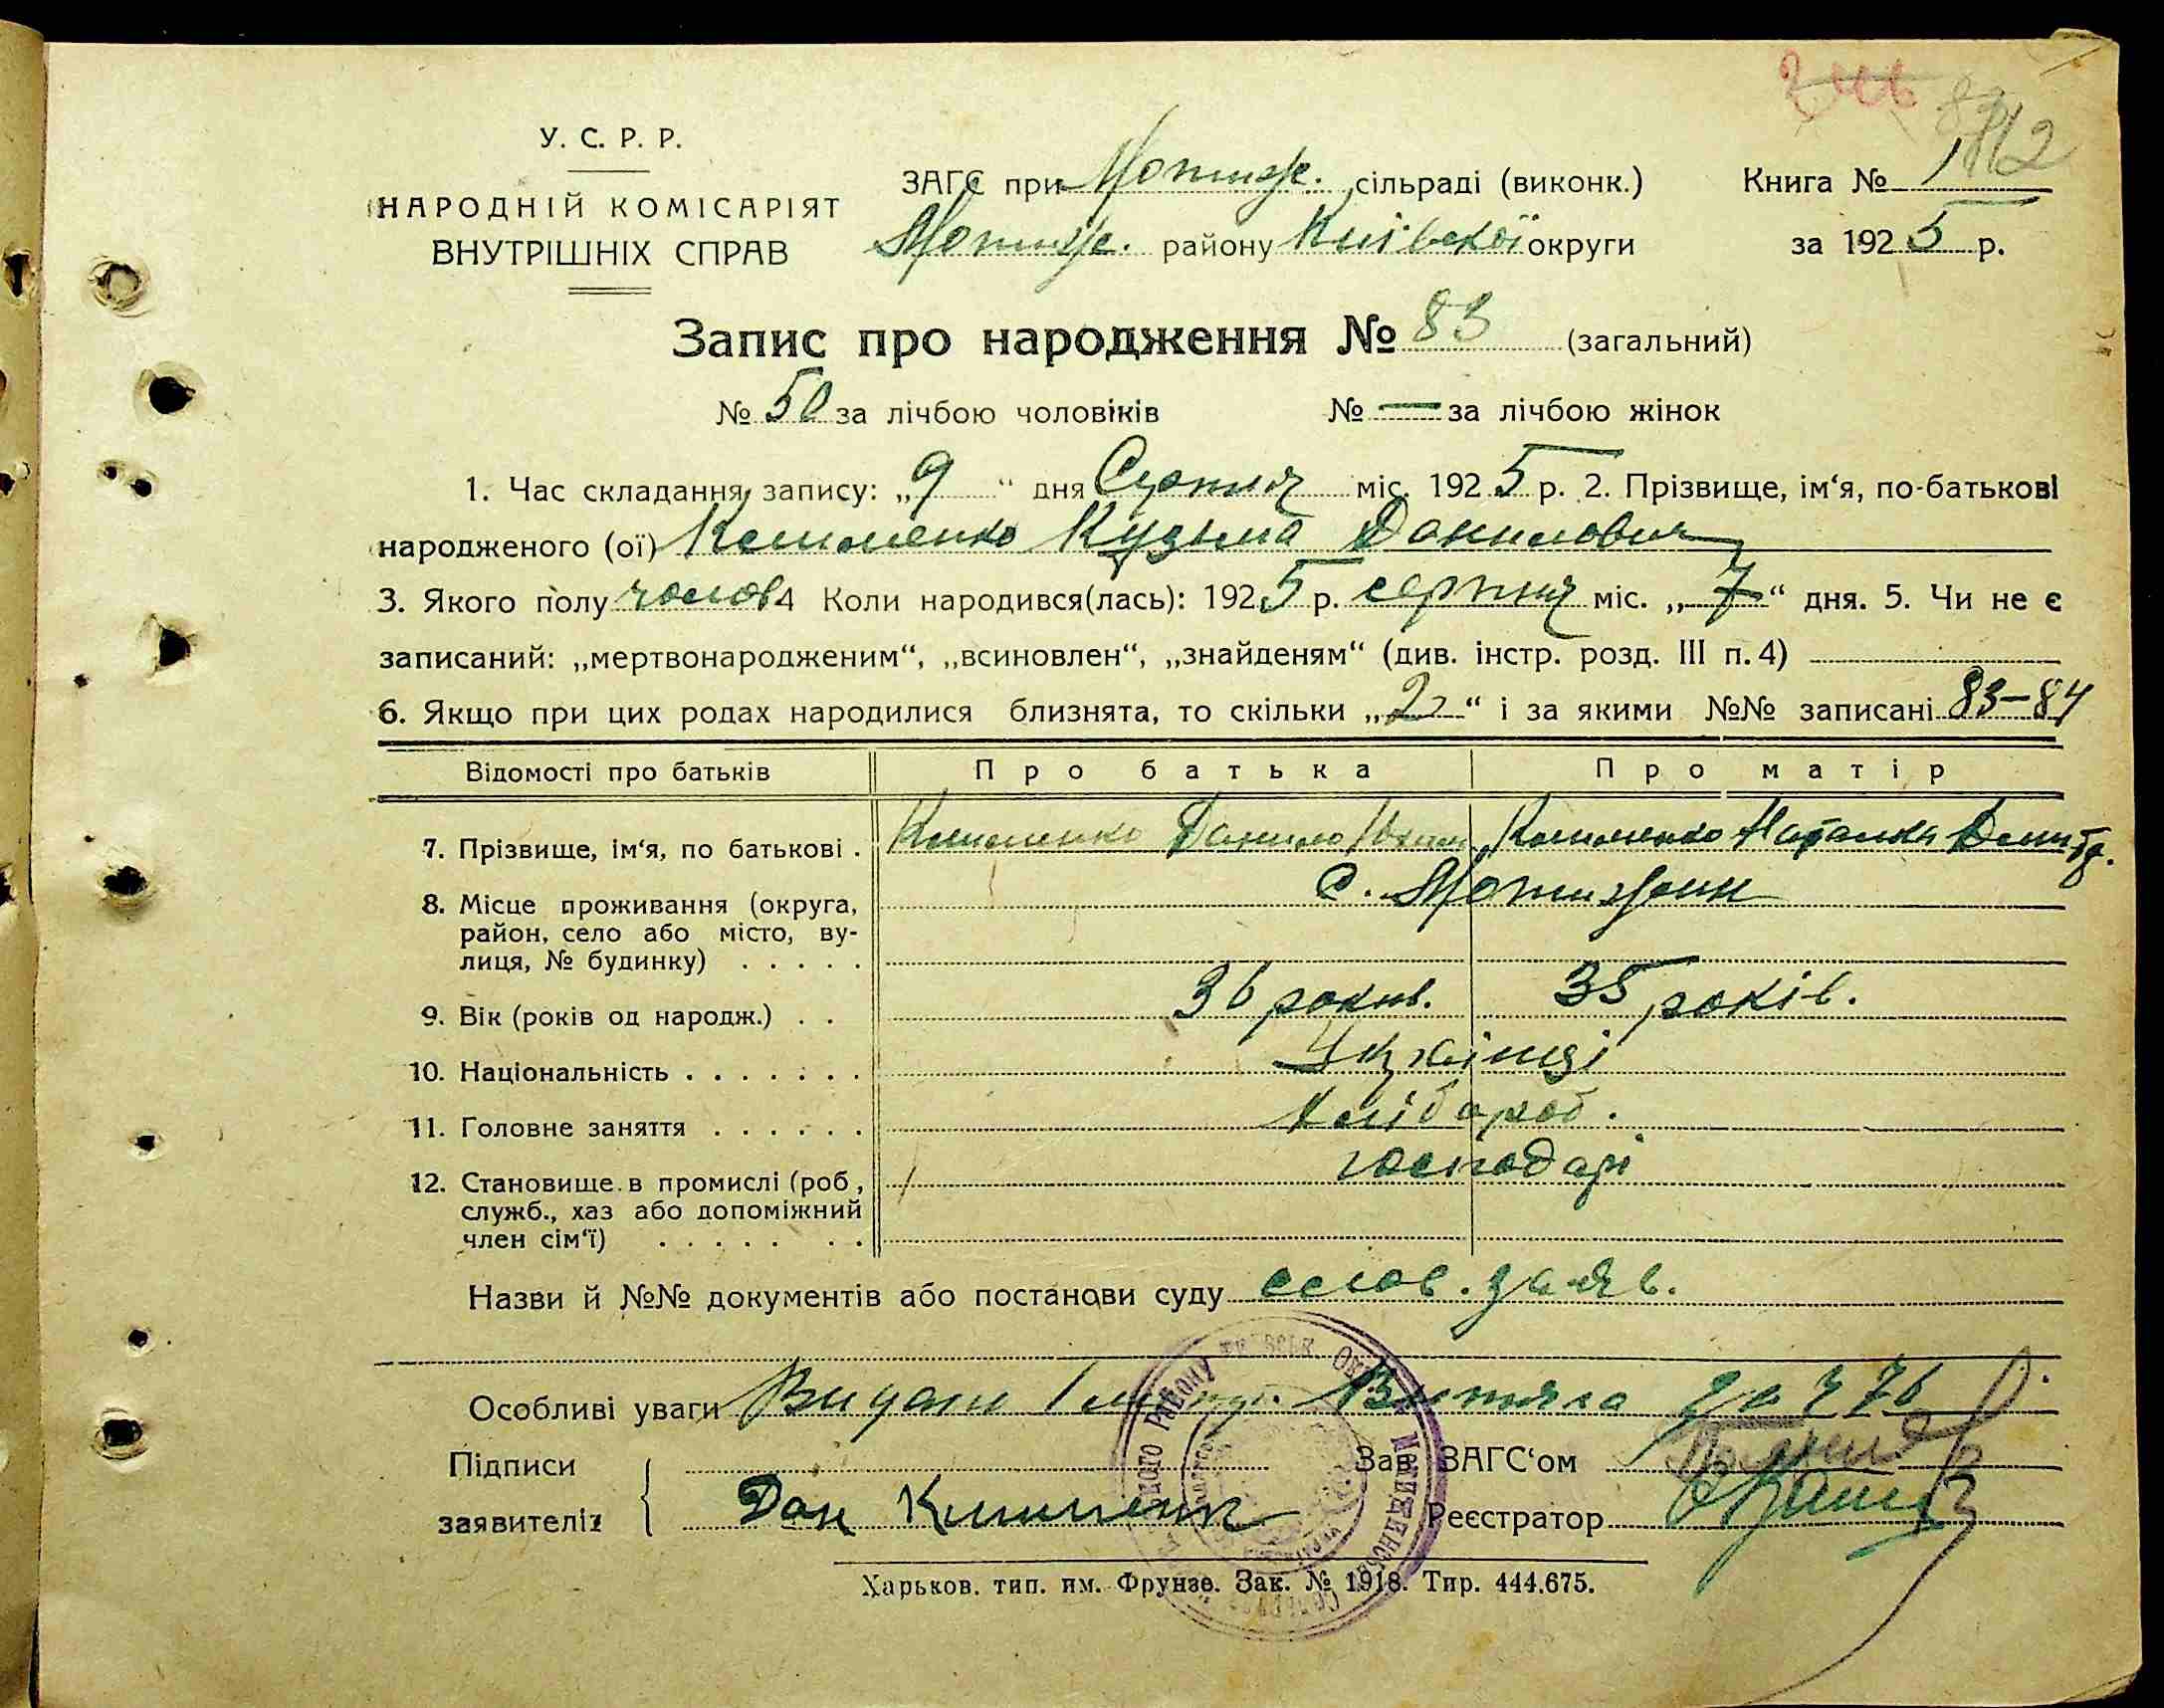 У. С. Р. Р.
НАРОДНІЙ КОМІСАРІЯТ
ВНУТРІШНІХ СПРАВ
ЗАГС при Мотиж. сільраді (виконк.)
Мотиж. району Київської округи
Книга № 1
за 1925 р.
Запис про народження № 83 (загальний)
№ 50 за лічбою чоловіків № — за лічбою жінок
1. Час складання запису: „9“ дня Серпня міс. 1925 р. 2. Прізвище, ім‘я, по-батькові
народженого (ої) Клименко Кузьма Данилович
3. Якого полу чолов 4 Коли народився(лась): 1925 р. серпня міс. „7“ дня. 5. Чи не є
записаний: „мертвонародженим“, „всиновлен“, „знайденям“ (див. інстр. розд. III п. 4)
6. Якщо при цих родах народилися близнята, то скільки „2“ і за якими №№ записані 83–84
Відомості про батьків Про батька Про матір
7. Прізвище, ім‘я, по батькові . Клименко Данило Клименко Наталка Дмитр.
8. Місце проживання (округа, с. Мотижин
район, село або місто, ву-
лиця, № будинку) . . . . .
9. Вік (років од народж.) . . 36 років. 35 років.
10. Національність . . . . . . . Українці
11. Головне заняття . . . . . . Хлібороб.
12. Становище в промислі (роб, господарі
служб., хаз або допоміжний
член сім‘ї) . . . . . . .
Назви й №№ документів або постанови суду слов. заяв.
Особливі уваги Видани Витяга за № 76
Підписи
заявителів Дан Клименк
Зав. ЗАГС‘ом
Реєстратор
Харьков. тип. им. Фрунзе. Зак. № 1918. Тир. 444.675.